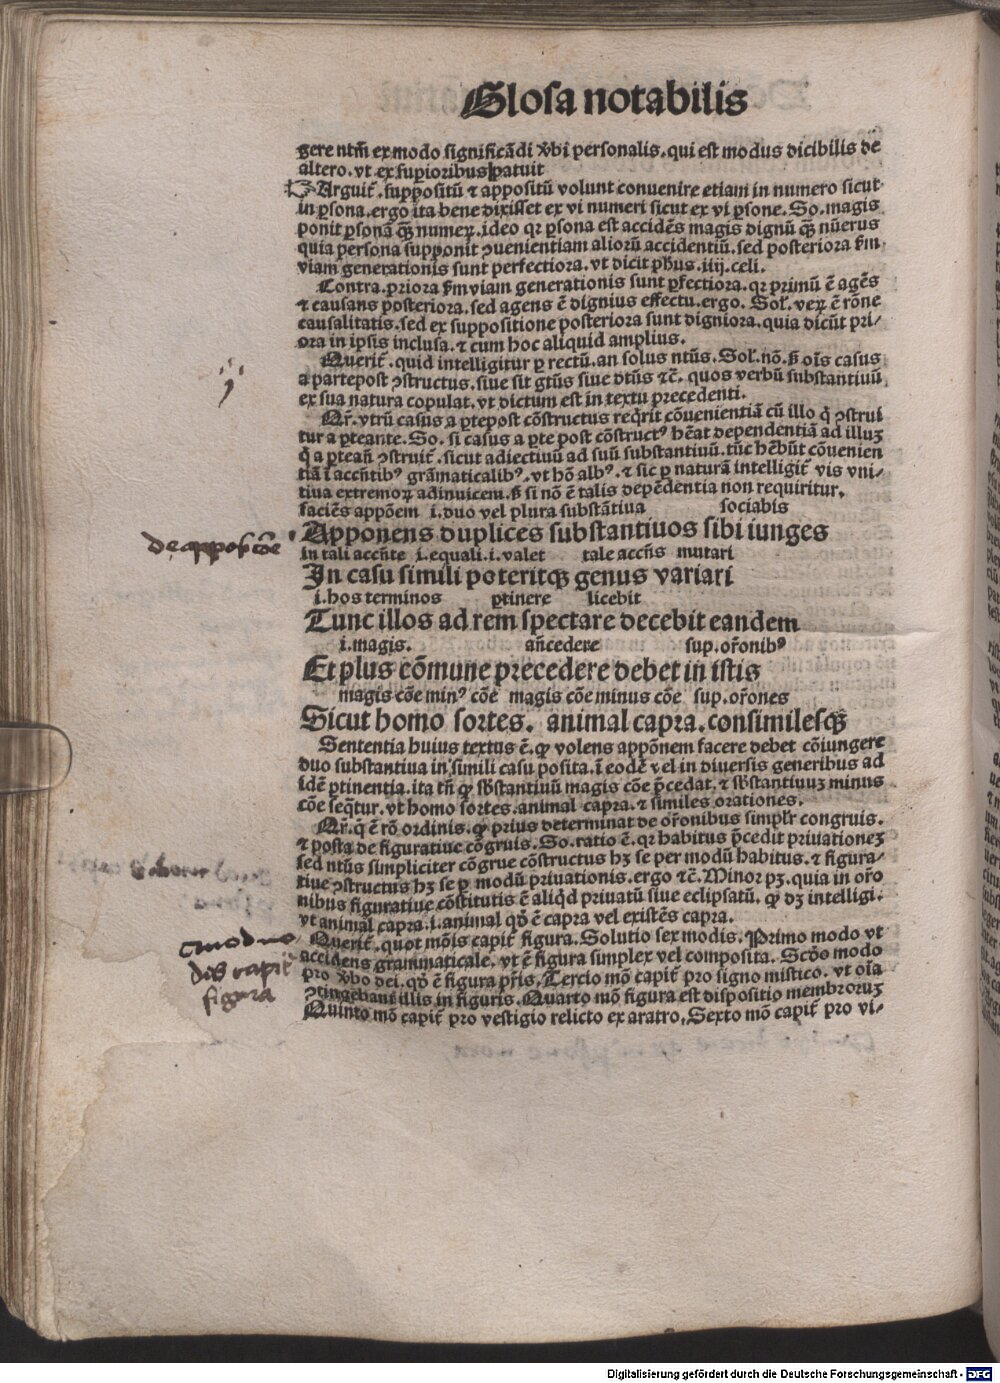 Glosa notabilis
gere ntm̄ ex modo significādi v̄bi personalis. qui est modus dicibilis de
altero. vt ex supioribus patuit
Arguit̄. suppositū ⁊ appositū volunt conuenire etiam in numero sicut
in ꝑsona. ergo ita bene dixisset ex vi numeri sicut ex vi ꝑsone. So. magis
ponit ꝑsonā qꝫ̄ numeꝝ. ideo qꝛ ꝑsona est accidēs magis dignū qꝫ̄ nūerus
quia persona supponit ꝯuenientiam alioꝛū accidentiū. sed posterioꝛa ẜm
viam generationis sunt perfectioꝛa. vt dicit pħus. iiij. celi.
Contra. pꝛioꝛa ẜm viam generationis sunt ꝑfectioꝛa. qꝛ pꝛimū ē agēs
⁊ causans posterioꝛa. sed agens ē dignius effectu. ergo. Sol̄. veꝝ ē rōne
causalitatis. sed ex suppositione posterioꝛa sunt dignioꝛa. quia dicūt pꝛi/
oꝛa in ipsis inclusa. ⁊ cum hoc aliquid amplius.
Querit̄. quid intelligitur ꝑ rectū. an solus ntūs. Sol̄. nō. ẜ oīs casus
a partepost ꝯstructus. siue sit gtūs siue dtūs ⁊c̄. quos verbū substantiuū
ex sua natura copulat. vt dictum est in textu pꝛecedenti.
Qr̄. vtrū casus a ꝑtepost cōstructus reqͥrit cōuenientiā cū illo qͥ ꝯstrui
tur a ꝑteante. So. si casus a ꝑte post cōstructꝰ hēat dependentiā ad illuꝫ
qͥ a ꝑteañ ꝯstruit̄. sicut adiectiuū ad suū substantiuū. tūc hēbūt cōuenien
tiā ī accñtibꝰ grāmaticalibꝰ. vt hō albꝰ. ⁊ sic ꝑ naturā intelligit̄ vis vni/
tiua extremoꝝ adinuicem. ẜ si nō ē talis depēdentia non requiritur.
faciēs appōem i. duo vel plura substātiua sociabis
Apponens duplices substantiuos sibi iunges
in tali accñte i. equali. i. valet tale accñs mutari
In casu simili poteritqꝫ genus variari
i. hos terminos ꝑtinere licebit
Tunc illos ad rem spectare decebit eandem
i. magis. añcedere sup. oꝛ̄onibꝰ
Et plus cōmune pꝛecedere debet in istis
magis cōe minꝰ cōe magis cōe minus cōe sup. oꝛ̄ones
Sicut homo soꝛtes. animal capꝛa. consimilesqꝫ
Sententia huius textus ē. ꝙ volens appōnem facere debet cōiungere
duo substantiua in simili casu posita. ī eodē vel in diuersis generibus ad
idē ꝑtinentia. ita tñ ꝙ sb̄stantiuū magis cōe p̄cedat. ⁊ sb̄stantiuuꝫ minus
cōe seqͥtur. vt homo soꝛtes. animal capꝛa. ⁊ similes oꝛationes.
Qr̄. qͥ ē rō oꝛdinis. ꝙ pꝛius determinat de oꝛ̄onibus simplr̄ congruis.
⁊ posta de figuratiue cōgruis. So. ratio ē. qꝛ habitus p̄cedit pꝛiuationeꝫ
sed ntūs simpliciter cōgrue cōstructus hꝫ se per modū habitus. ⁊ figura/
tiue ꝯstructus hꝫ se ꝑ modū pꝛiuationis. ergo ⁊c̄. Minoꝛ pꝫ. quia in oꝛ̄o
nibus figuratiue cōstitutis ē aliqͥd pꝛiuatū siue eclipsatū. ꝙ dꝫ intelligi.
vt animal capꝛa. i. animal qd̄ ē capꝛa vel existēs capꝛa.
Querit̄. quot mōis capit̄ figura. Solutio sex modis. Pꝛimo modo vt
accidens grammaticale. vt ē figura simplex vel composita. Scd̄o modo
pꝛo v̄bo dei. qd̄ ē figura pr̄is. Tercio mō capit̄ pꝛo signo mistico. vt oīa
ꝯtingebant illis in figuris. Quarto mō figura est dispositio membroꝛuꝫ
Quinto mō capit̄ pꝛo vestigio relicto ex aratro. Sexto mō capit̄ pꝛo vi-
figura
Digitalisierung gefördert durch die Deutsche Forschungsgemeinschaft - DFG